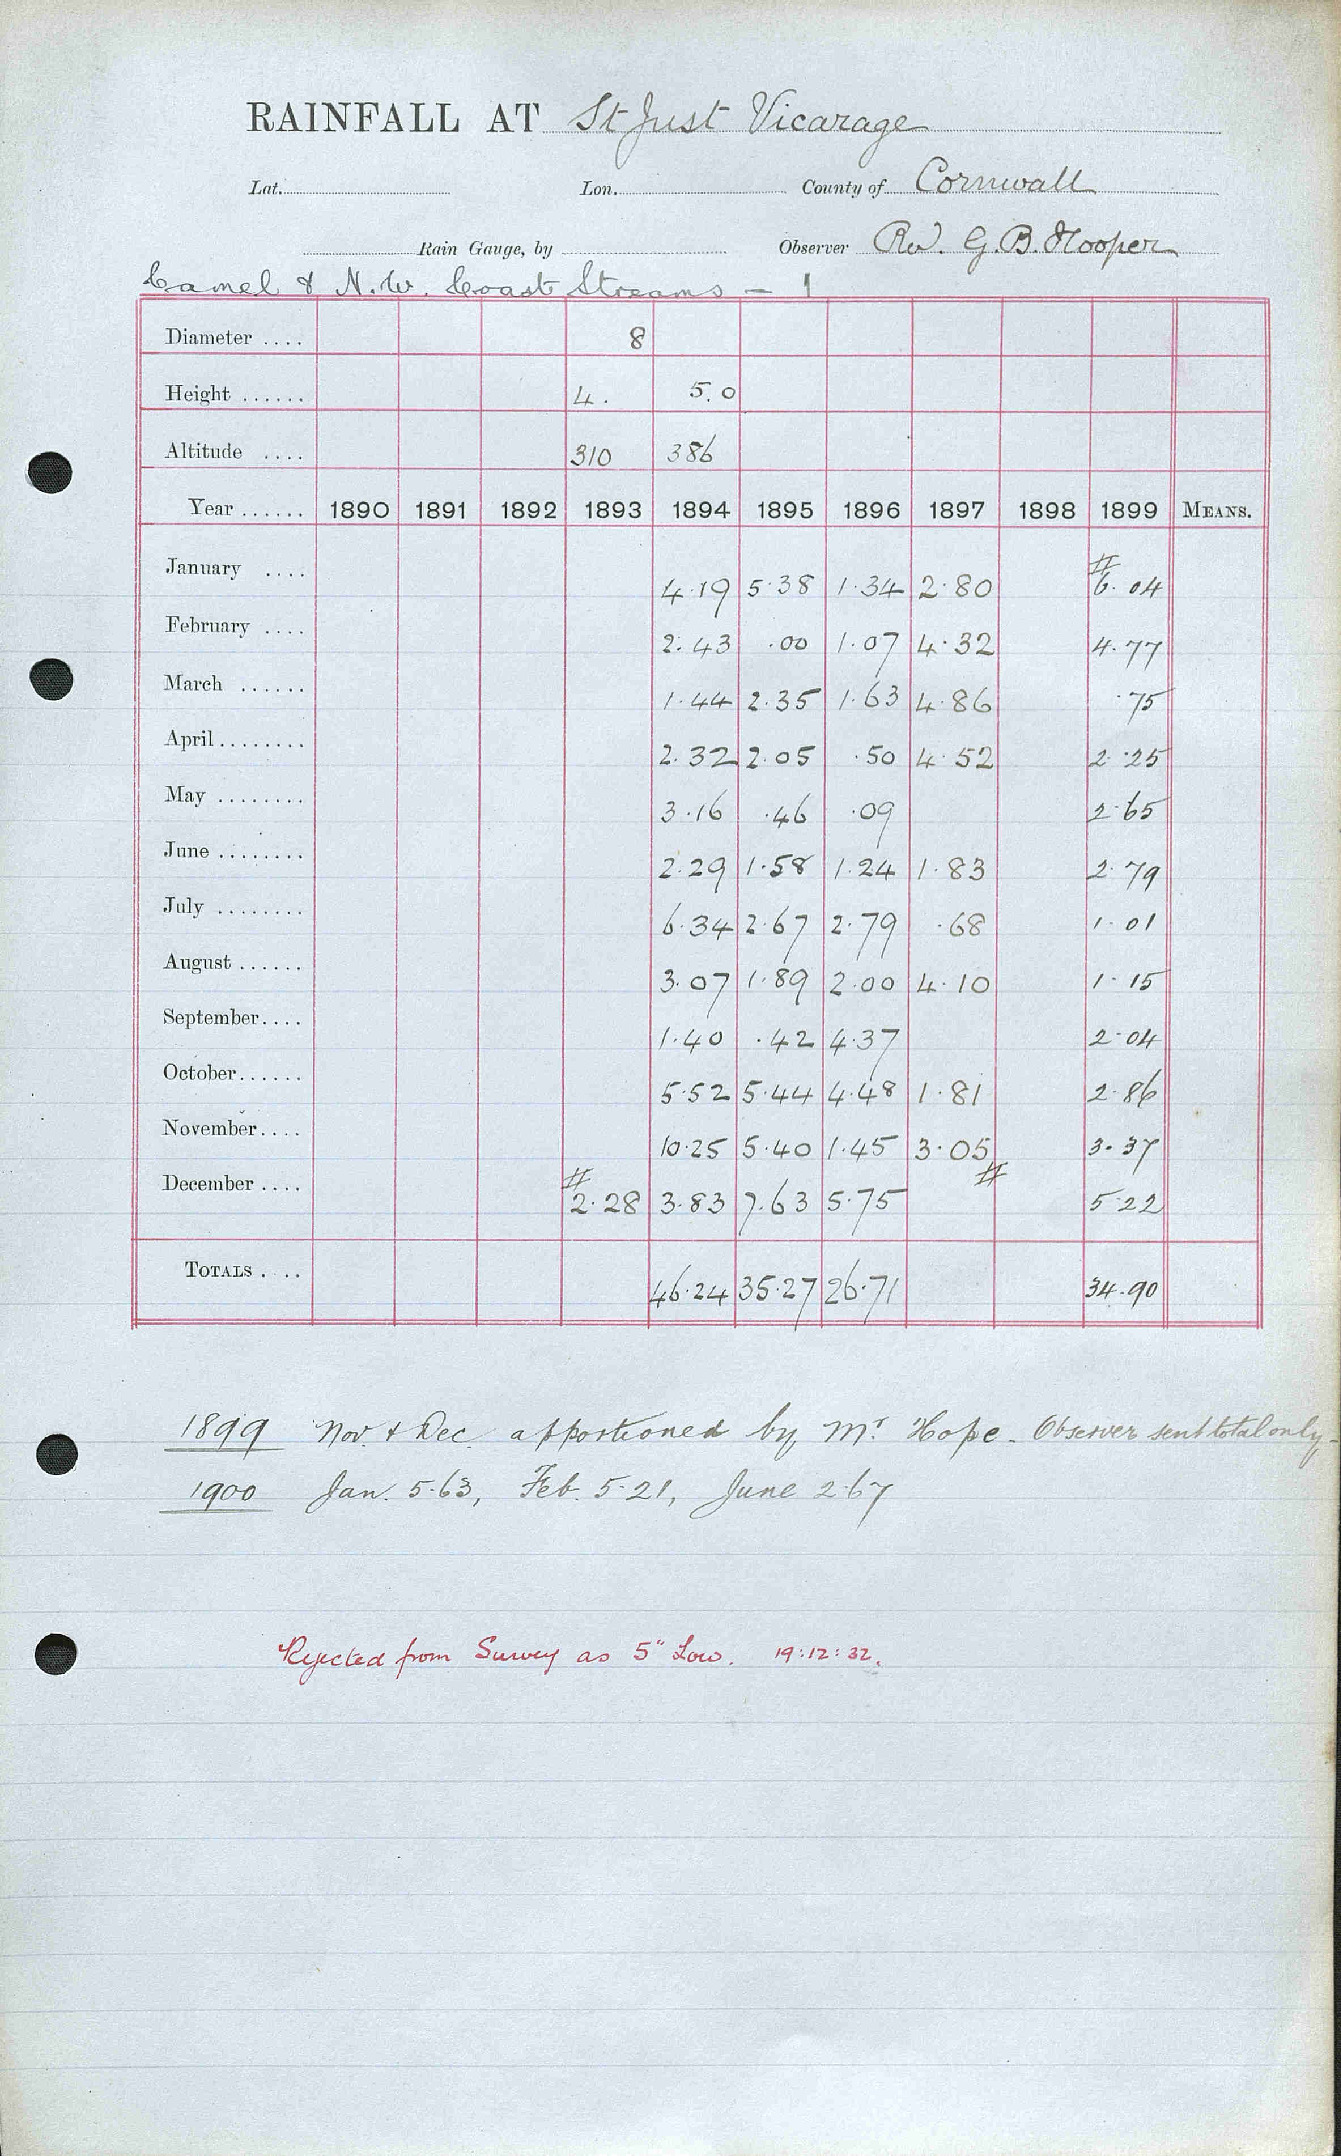 RAINFALL AT St Just Vicarage
Lat. Lon. County of Cornwall
Rain Gauge, by Observer Rev. G.B. Hooper
Camel & N.W. Coast Streams - 1
Diameter .... 8
Height ...... 4. 5.0
Altitude .... 310 386
Year ...... 1890 1891 1892 1893 1894 1895 1896 1897 1898 1899 MEANS.
January .... 4.19 5.38 1.34 2.80 # 6.04
February .... 2.43 .00 1.07 4.32 4.77
March ...... 1.44 2.35 1.63 4.86 .75
April........ 2.32 2.05 .50 4.52 2.25
May ........ 3.16 .46 .09 2.65
June ........ 2.29 1.58 1.24 1.83 2.79
July ........ 6.34 2.67 2.79 .68 1.01
August ...... 3.07 1.89 2.00 4.10 1.15
September.... 1.40 .42 4.37 2.04
October...... 5.52 5.44 4.48 1.81 2.86
November.... 10.25 5.40 1.45 3.05 3.37
December .... # 2.28 3.83 7.63 5.75 # 5.22
TOTALS .... 46.24 35.27 26.71 34.90
1899 Nov. & Dec. apportioned by Mr. Hope. Observer sent total only.
1900 Jan. 5.63, Feb. 5.21, June 2.67
Rejected from Survey as 5" Low. 19:12:32.